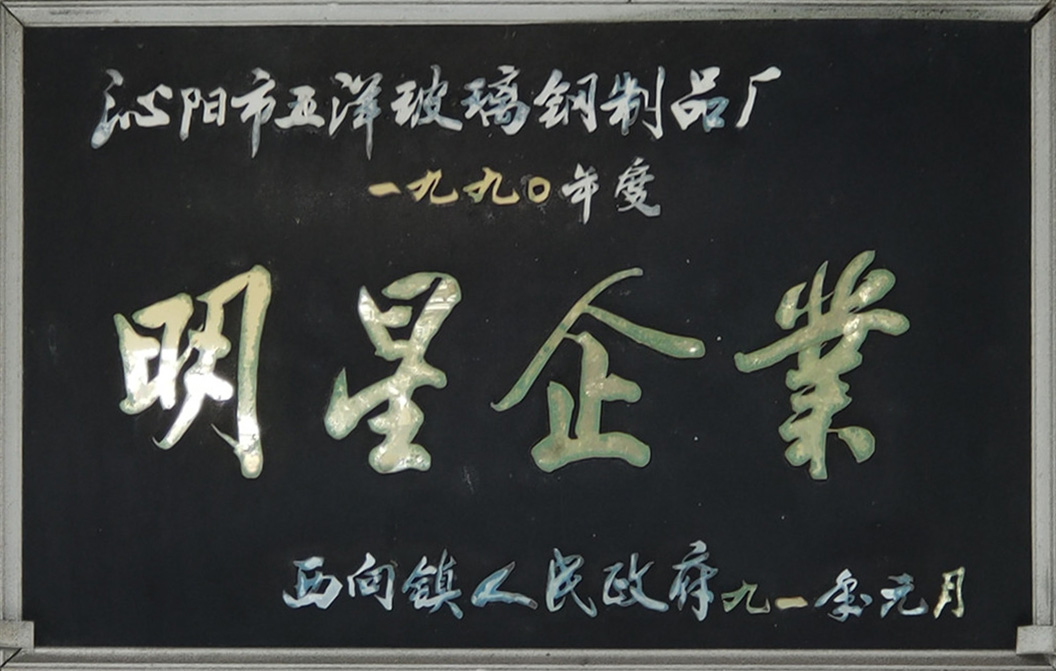 沁阳市五洋玻璃钢制品厂
一九九〇年度
明星企業
西向镇人民政府九一年元月